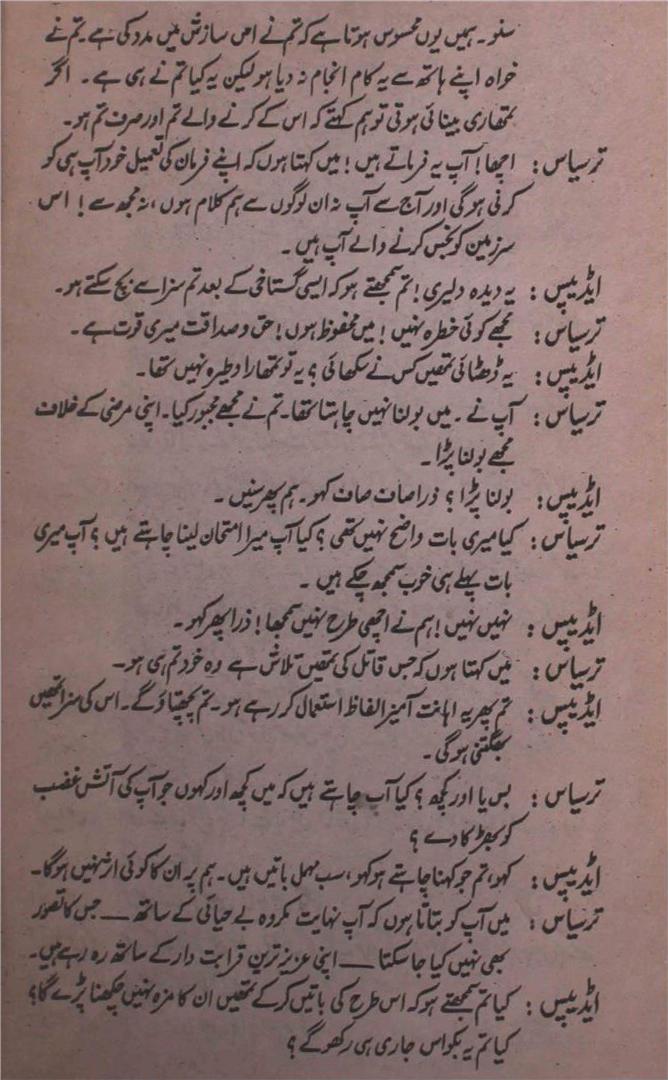 سنو۔ ہمیں یوں محسوس ہوتا ہے کہ تم نے اس سازش میں مدد کی ہے۔ تم نے
خواہ اپنے ہاتھ سے یہ کام انجام نہ دیا ہو لیکن یہ کیا تم نے ہی ہے۔ اگر
تمھاری بینائی ہوتی تو ہم کہتے کہ اس کے کرنے والے تم اور صرف تم ہو۔
ترسیاس: اچھا! آپ یہ فرماتے ہیں! میں کہتا ہوں کہ اپنے فرمان کی تعمیل خود آپ ہی کو
کرنی ہو گی اور آج سے آپ نہ ان لوگوں سے ہم کلام ہوں، نہ مجھ سے! اس
سرزمین کو نجس کرنے والے آپ ہیں۔
ایڈیپس: یہ دیدہ دلیری! تم سمجھتے ہو کہ ایسی گستاخی کے بعد تم سزا سے بچ سکتے ہو۔
ترسیاس: مجھے کوئی خطرہ نہیں! میں محفوظ ہوں! حق و صداقت میری قوت ہے۔
ایڈیپس: یہ ڈھٹائی تمھیں کس نے سکھائی؟ یہ تو تمھارا وطیرہ نہیں تھا۔
ترسیاس: آپ نے۔ میں بولنا نہیں چاہتا تھا۔ تم نے مجھے مجبور کیا۔ اپنی مرضی کے خلاف
مجھے بولنا پڑا۔
ایڈیپس: بولنا پڑا؟ ذرا صاف صاف کہو۔ ہم پھر سنیں۔
ترسیاس: کیا میری بات واضح نہیں تھی؟ کیا آپ میرا امتحان لینا چاہتے ہیں؟ آپ میری
بات پہلے ہی خوب سمجھ چکے ہیں۔
ایڈیپس: نہیں نہیں! ہم نے اچھی طرح نہیں سمجھا! ذرا پھر کہو۔
ترسیاس: میں کہتا ہوں کہ جس قاتل کی تمھیں تلاش ہے وہ خود تم ہی ہو۔
ایڈیپس: تم پھر یہ اہانت آمیز الفاظ استعمال کر رہے ہو۔ تم پچھتاؤ گے۔ اس کی سزا تمھیں
بھگتنی ہو گی۔
ترسیاس: بس یا اور کچھ؟ کیا آپ چاہتے ہیں کہ میں کچھ اور کہوں جو آپ کی آتش غضب
کو بھڑکا دے؟
ایڈیپس: کہو، تم جو کہنا چاہتے ہو کہو، سب مہمل باتیں ہیں۔ ہم پر ان کا کوئی اثر نہیں ہوگا۔
ترسیاس: میں آپ کو بتاتا ہوں کہ آپ نہایت مکروہ بے حیائی کے ساتھ — جس کا تصور
بھی نہیں کیا جا سکتا — اپنی عزیز ترین قرابت دار کے ساتھ رہ رہے ہیں۔
ایڈیپس: کیا تم سمجھتے ہو کہ اس طرح کی باتیں کر کے تمھیں ان کا مزہ نہیں چکھنا پڑے گا؟
کیا تم یہ بکواس جاری ہی رکھو گے؟